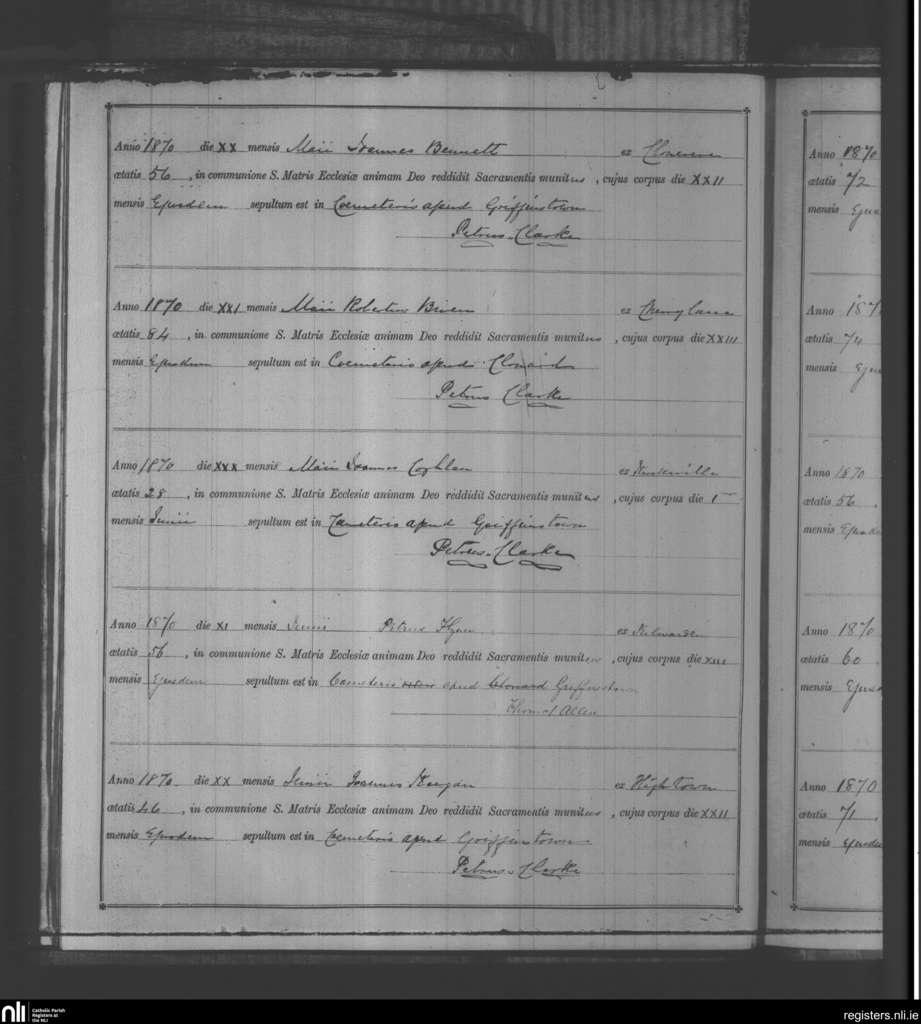 Anno 1870 die XX mensis Maii Joannes Bennett ex
ætatis 56, in communione S. Matris Ecclesiæ animam Deo reddidit Sacramentis munitus, cujus corpus die XXII
mensis Ejusdem sepultum est in Coemeterio apud Griffinstown
Petrus Clarke
Anno 1870 die XXI mensis Maii Robertus ex
ætatis 84, in communione S. Matris Ecclesiæ animam Deo reddidit Sacramentis munitus, cujus corpus die XXIII
mensis Ejusdem sepultum est in Coemeterio apud Clonard
Petrus Clarke
Anno 1870 die XXX mensis Maii Joannes Coghlan ex
ætatis 28, in communione S. Matris Ecclesiæ animam Deo reddidit Sacramentis munitus, cujus corpus die 1
mensis Junii sepultum est in Coemeterio apud Griffinstown
Petrus Clarke
Anno 1870 die XI mensis Junii Petrus Flynn ex
ætatis 56, in communione S. Matris Ecclesiæ animam Deo reddidit Sacramentis munitus, cujus corpus die XIII
mensis Ejusdem sepultum est in Coemeterio apud Clonard Griffinstown
Thomas Allen
Anno 1870 die XX mensis Junii Joannes Keegan ex Hightown
ætatis 46, in communione S. Matris Ecclesiæ animam Deo reddidit Sacramentis munitus, cujus corpus die XXII
mensis Ejusdem sepultum est in Coemeterio apud Griffinstown
Petrus Clarke
Anno 1870
ætatis 72
mensis
Anno
ætatis 74
mensis
Anno 1870
ætatis 56
mensis
Anno 1870
ætatis 60
mensis
Anno 1870
ætatis 71
mensis
nli
Catholic Parish
Registers at
the NLI
registers.nli.ie